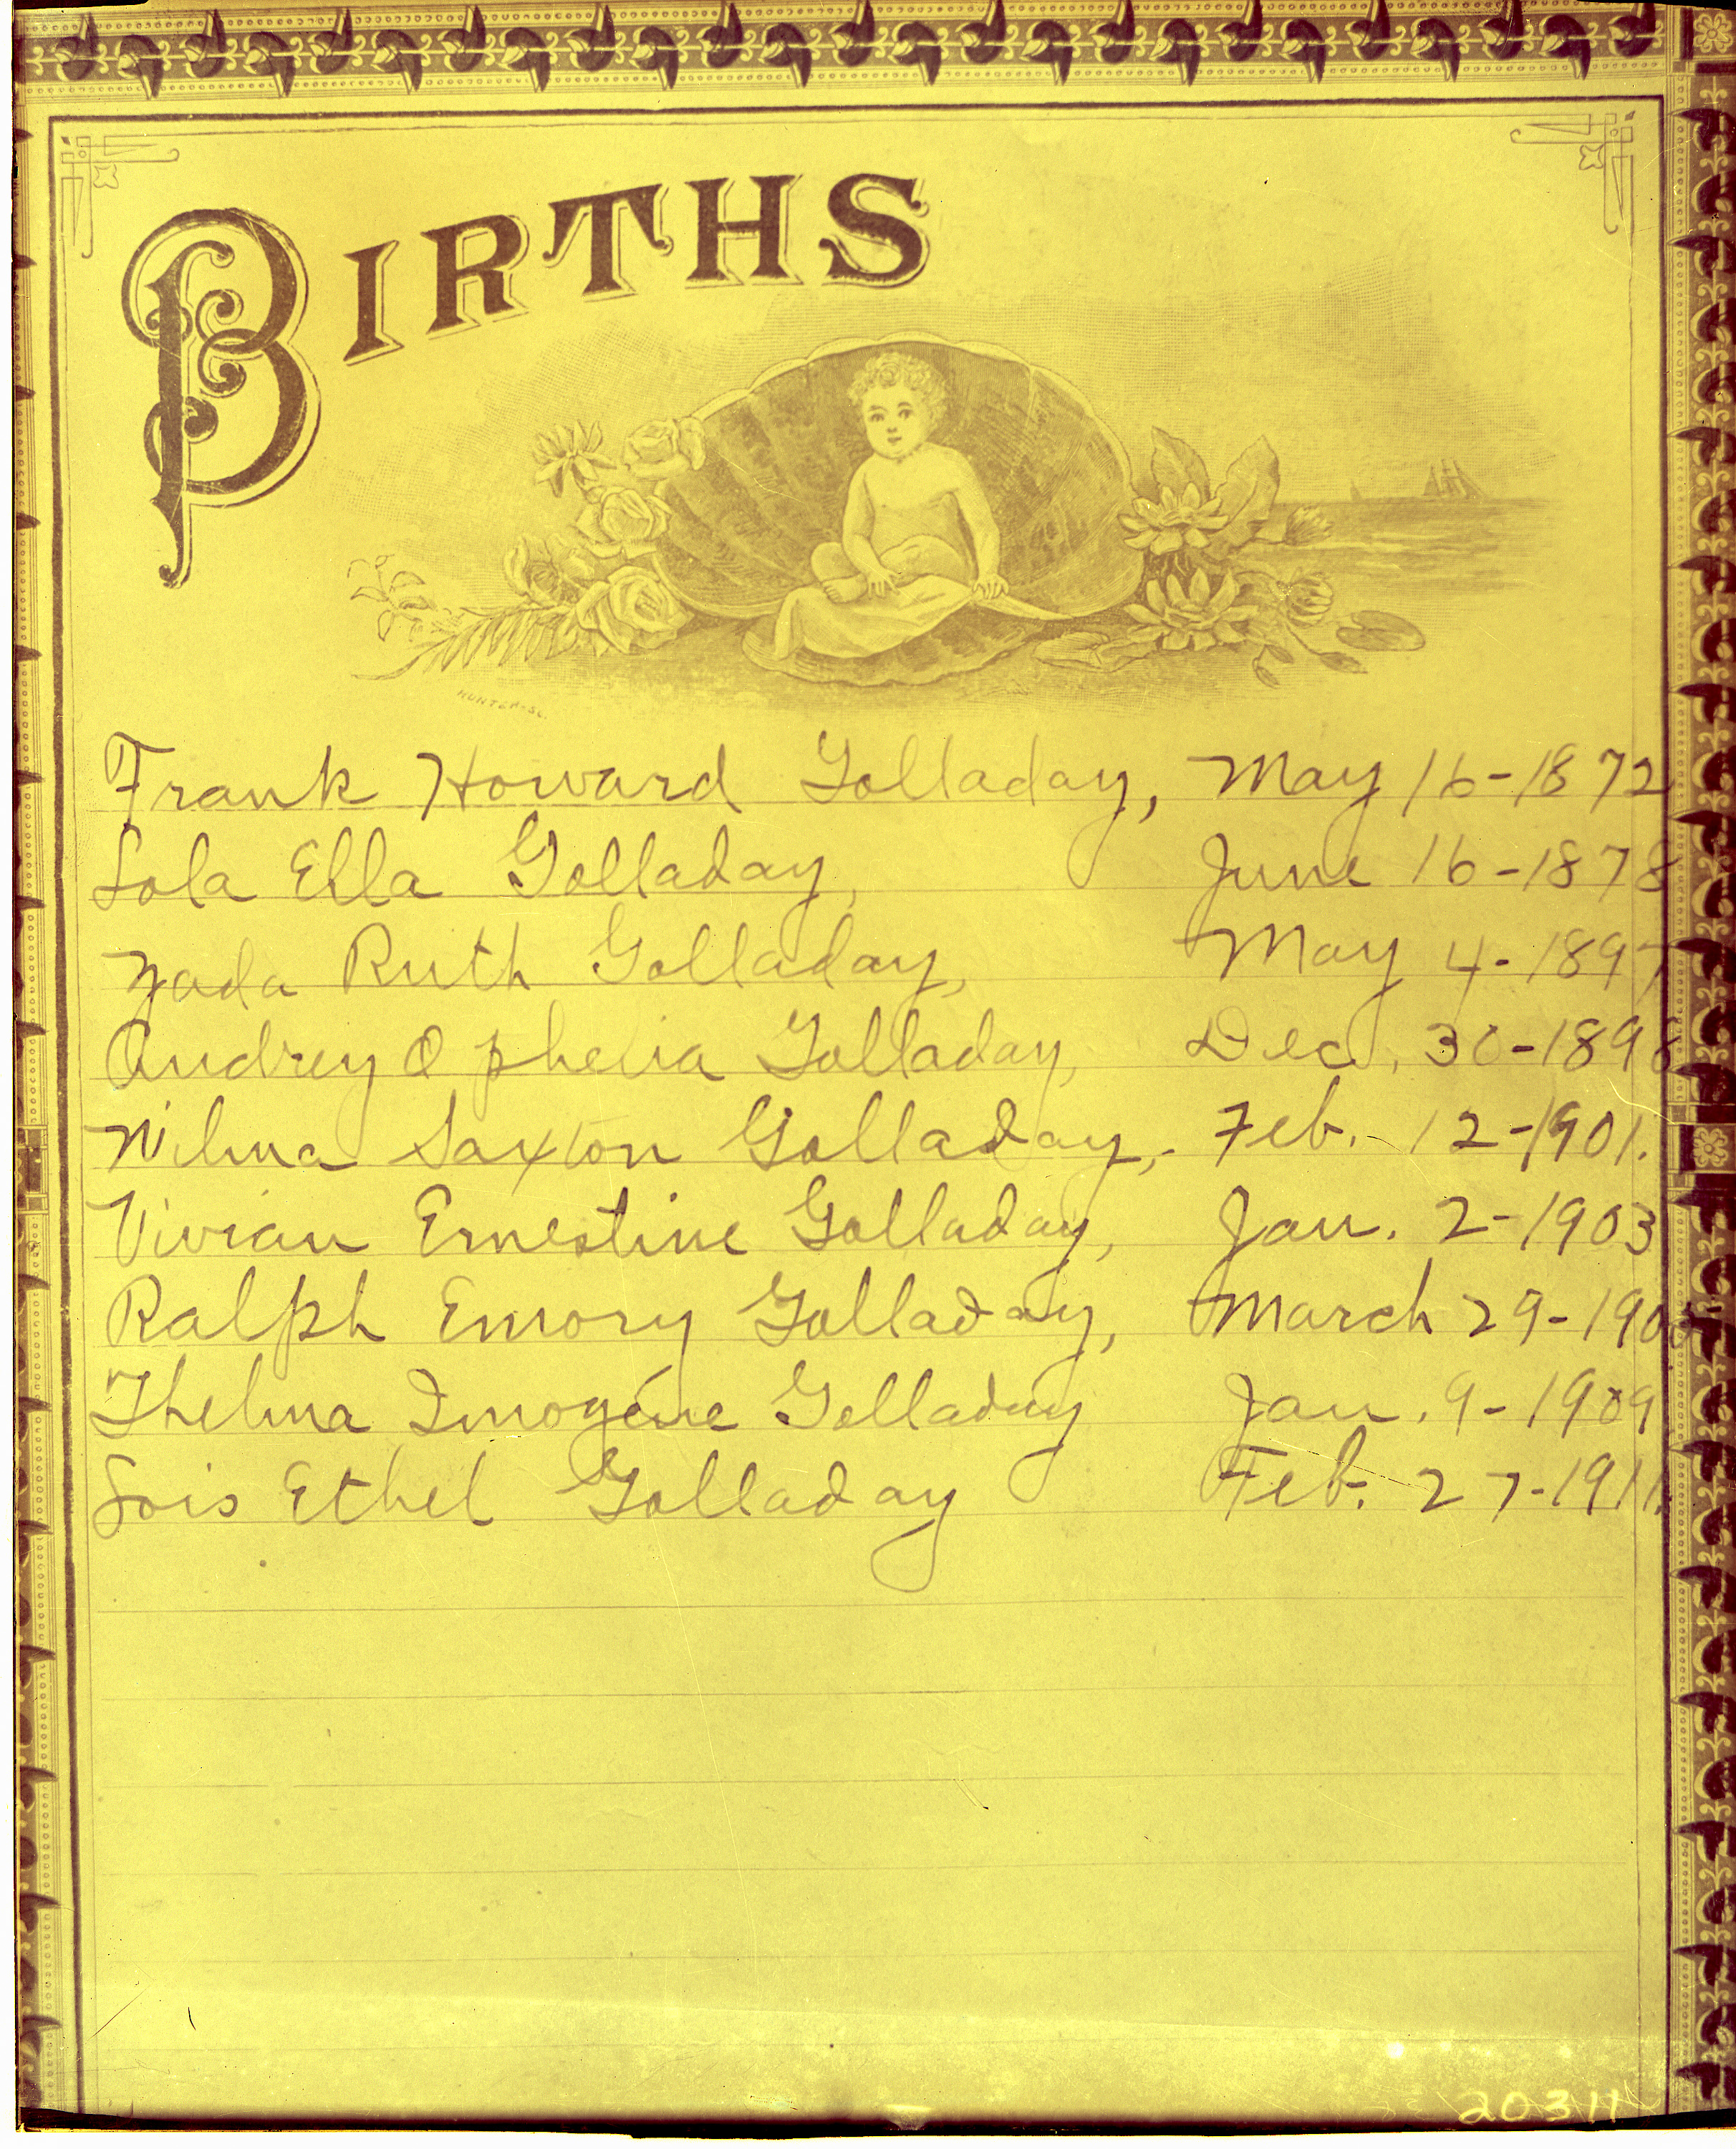 BIRTHS
HUNTER-SC.
Frank Howard Golladay, May 16-1872
Lola Ella Golladay, June 16-1878
Zada Ruth Golladay, May 4-1897
Audrey Ophelia Golladay, Dec. 30-1898
Wilma Saxton Golladay,- Feb.- 12-1901.
Vivian Ernestine Golladay, Jan. 2-1903
Ralph Emory Golladay, March 29-
Thelma Imogene Golladay Jan. 9-1909
Lois Ethel Golladay Feb. 27-1911.
20311